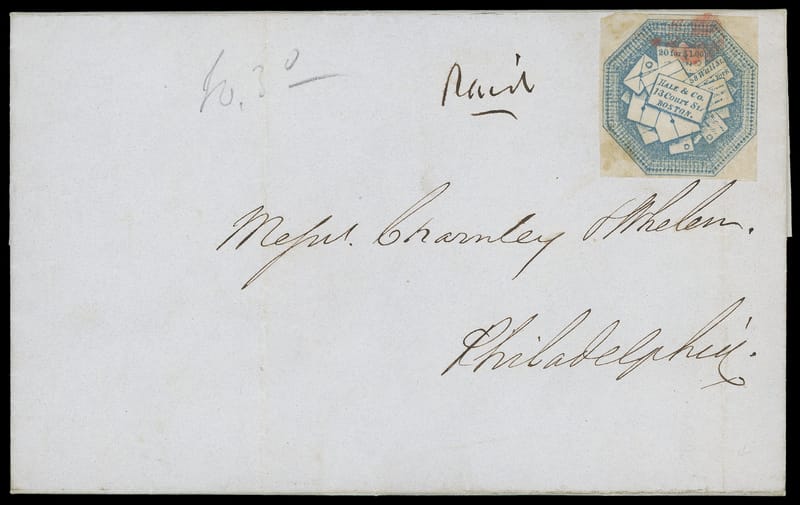 Paid
20 for $1.00
HALE & CO.
13 COURT ST.
BOSTON.
Messrs. Charnley & Whelen.
Philadelphia.